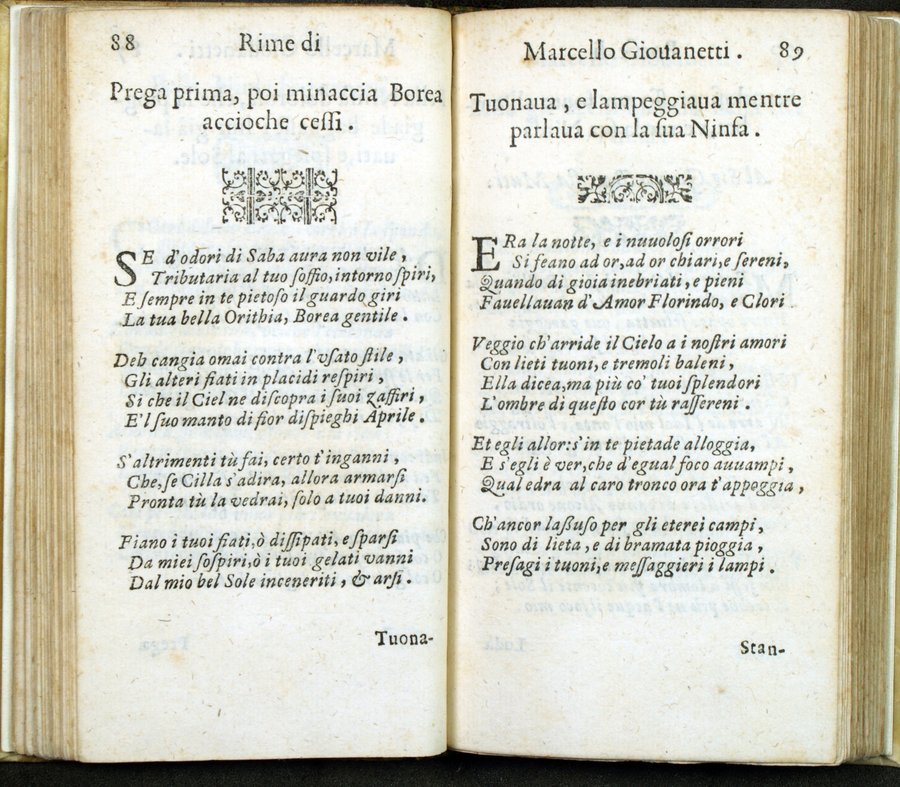 88 Rime di
Prega prima, poi minaccia Borea
accioche ceſſi.
SE d'odori di Saba aura non vile,
Tributaria al tuo ſoffio, intorno ſpiri,
E ſempre in te pietoſo il guardo giri
La tua bella Orithia, Borea gentile.
Deh cangia omai contra l'vſato ſtile,
Gli alteri fiati in placidi reſpiri,
Si che il Ciel ne diſcopra i ſuoi zaffiri,
E'l ſuo manto di fior diſpieghi Aprile.
S'altrimenti tù fai, certo t'inganni,
Che, ſe Cilla s'adira, allora armarſi
Pronta tù la vedrai, ſolo a tuoi danni.
Fiano i tuoi fiati, ò diſſipati, e ſparſi
Da miei ſoſpiri, ò i tuoi gelati vanni
Dal mio bel Sole inceneriti, & arſi.
Tuona-
Marcello Giouanetti. 89
Tuonaua, e lampeggiaua mentre
parlaua con la ſua Ninfa.
ERa la notte, e i nuuoloſi orrori
Si feano ad or, ad or chiari, e ſereni,
Quando di gioia inebriati, e pieni
Fauellauan d'Amor Florindo, e Clori
Veggio ch'arride il Cielo a i noſtri amori
Con lieti tuoni, e tremoli baleni,
Ella dicea, ma più co' tuoi ſplendori
L'ombre di queſto cor tù raſſereni.
Et egli allor: s'in te pietade alloggia,
E s'egli è ver, che d'egual foco auuampi,
Qual edra al caro tronco ora t'appoggia,
Ch'ancor laßuſo per gli eterei campi,
Sono di lieta, e di bramata pioggia,
Preſagi i tuoni, e meſſaggieri i lampi.
Stan-